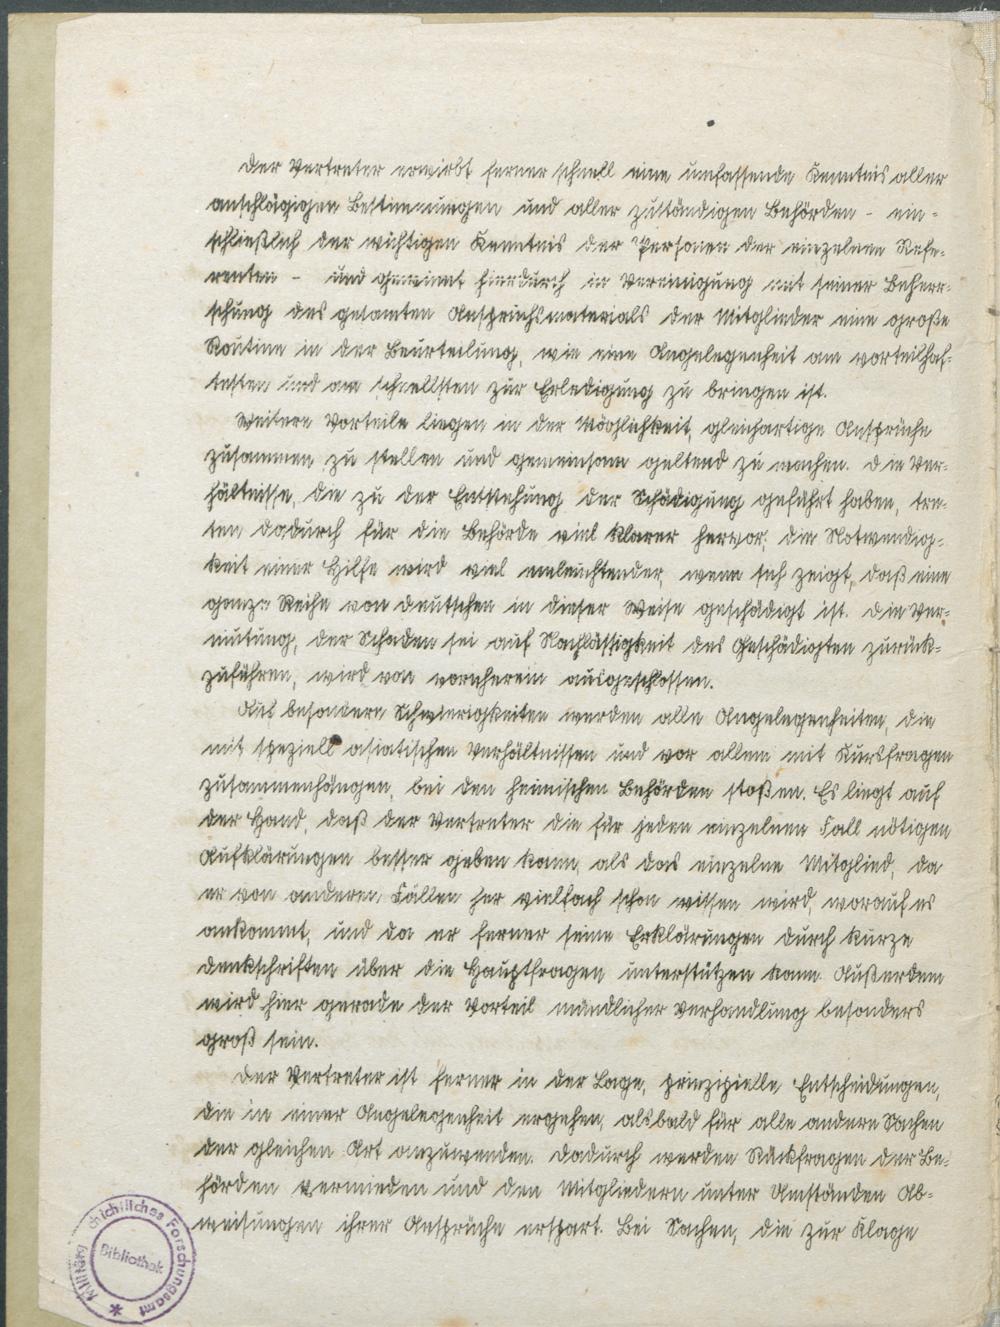 Der Vertreter erwirbt ferner schnell eine umfassende Kenntnis aller
anschlägigen Bestimmungen und aller zuständigen Behörden - ein-
schließlich der wichtigen Kenntnis der Personen der einzelnen Refe-
renten - und gewinnt hierdurch in Vereinigung mit seiner Beherr-
schung des gesamten Anspruchsmaterials der Mitglieder eine große
Routine in der Beurteilung, wie eine Angelegenheit am vorteilhaf-
testen und am schnellsten zur Erledigung zu bringen ist.
Weitere Vorteile liegen in der Möglichkeit, gleichartige Ansprüche
zusammen zu stellen und gemeinsam geltend zu machen. Die Ver-
hältnisse, die zu der Entstehung der Schädigung geführt haben, tre-
ten dadurch für die Behörde viel klarer hervor; die Notwendig-
keit einer Hilfe wird viel einleuchtender, wenn sich zeigt, daß eine
ganze Reihe von Deutschen in dieser Weise geschädigt ist. Die Ver-
mutung, der Schaden sei auf Nachlässigkeit des Geschädigten zurück-
zuführen, wird von vorneherein ausgeschlossen.
Auf besondere Schwierigkeiten werden alle Angelegenheiten, die
mit speziell asiatischen Verhältnissen und vor allem mit Kursfragen
zusammenhängen, bei den heimischen Behörden stoßen. Es liegt auf
der Hand, daß der Vertreter die für jeden einzelnen Fall nötigen
Aufklärungen besser geben kann, als das einzelne Mitglied, da
er von anderen Fällen her vielfach schon wissen wird, worauf es
ankommt, und da er ferner seine Erklärungen durch kurze
Denkschriften über die Hauptfragen unterstützen kann. Außerdem
wird hier gerade der Vorteil mündlicher Verhandlung besonders
groß sein.
Der Vertreter ist ferner in der Lage, prinzipielle Entscheidungen,
die in einer Angelegenheit ergehen, alsbald für alle andere Sachen
der gleichen Art anzuwenden. Dadurch werden Rückfragen der Be-
hörden vermieden und den Mitgliedern unter Umständen Ab-
weisungen ihrer Ansprüche erspart. Bei Sachen, die zur Klage
Militärgeschichtliches Forschungsamt
Bibliothek